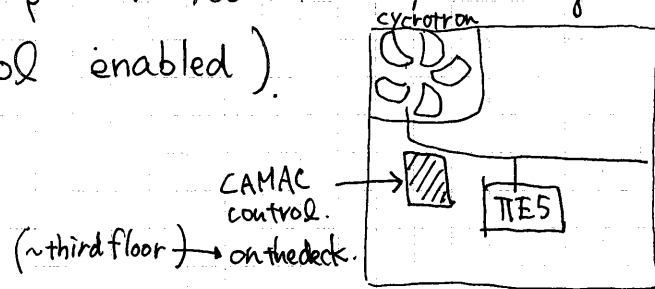 cycrotron
ol enabled ).
CAMAC
control.
πE5
(~third floor) → on the deck.